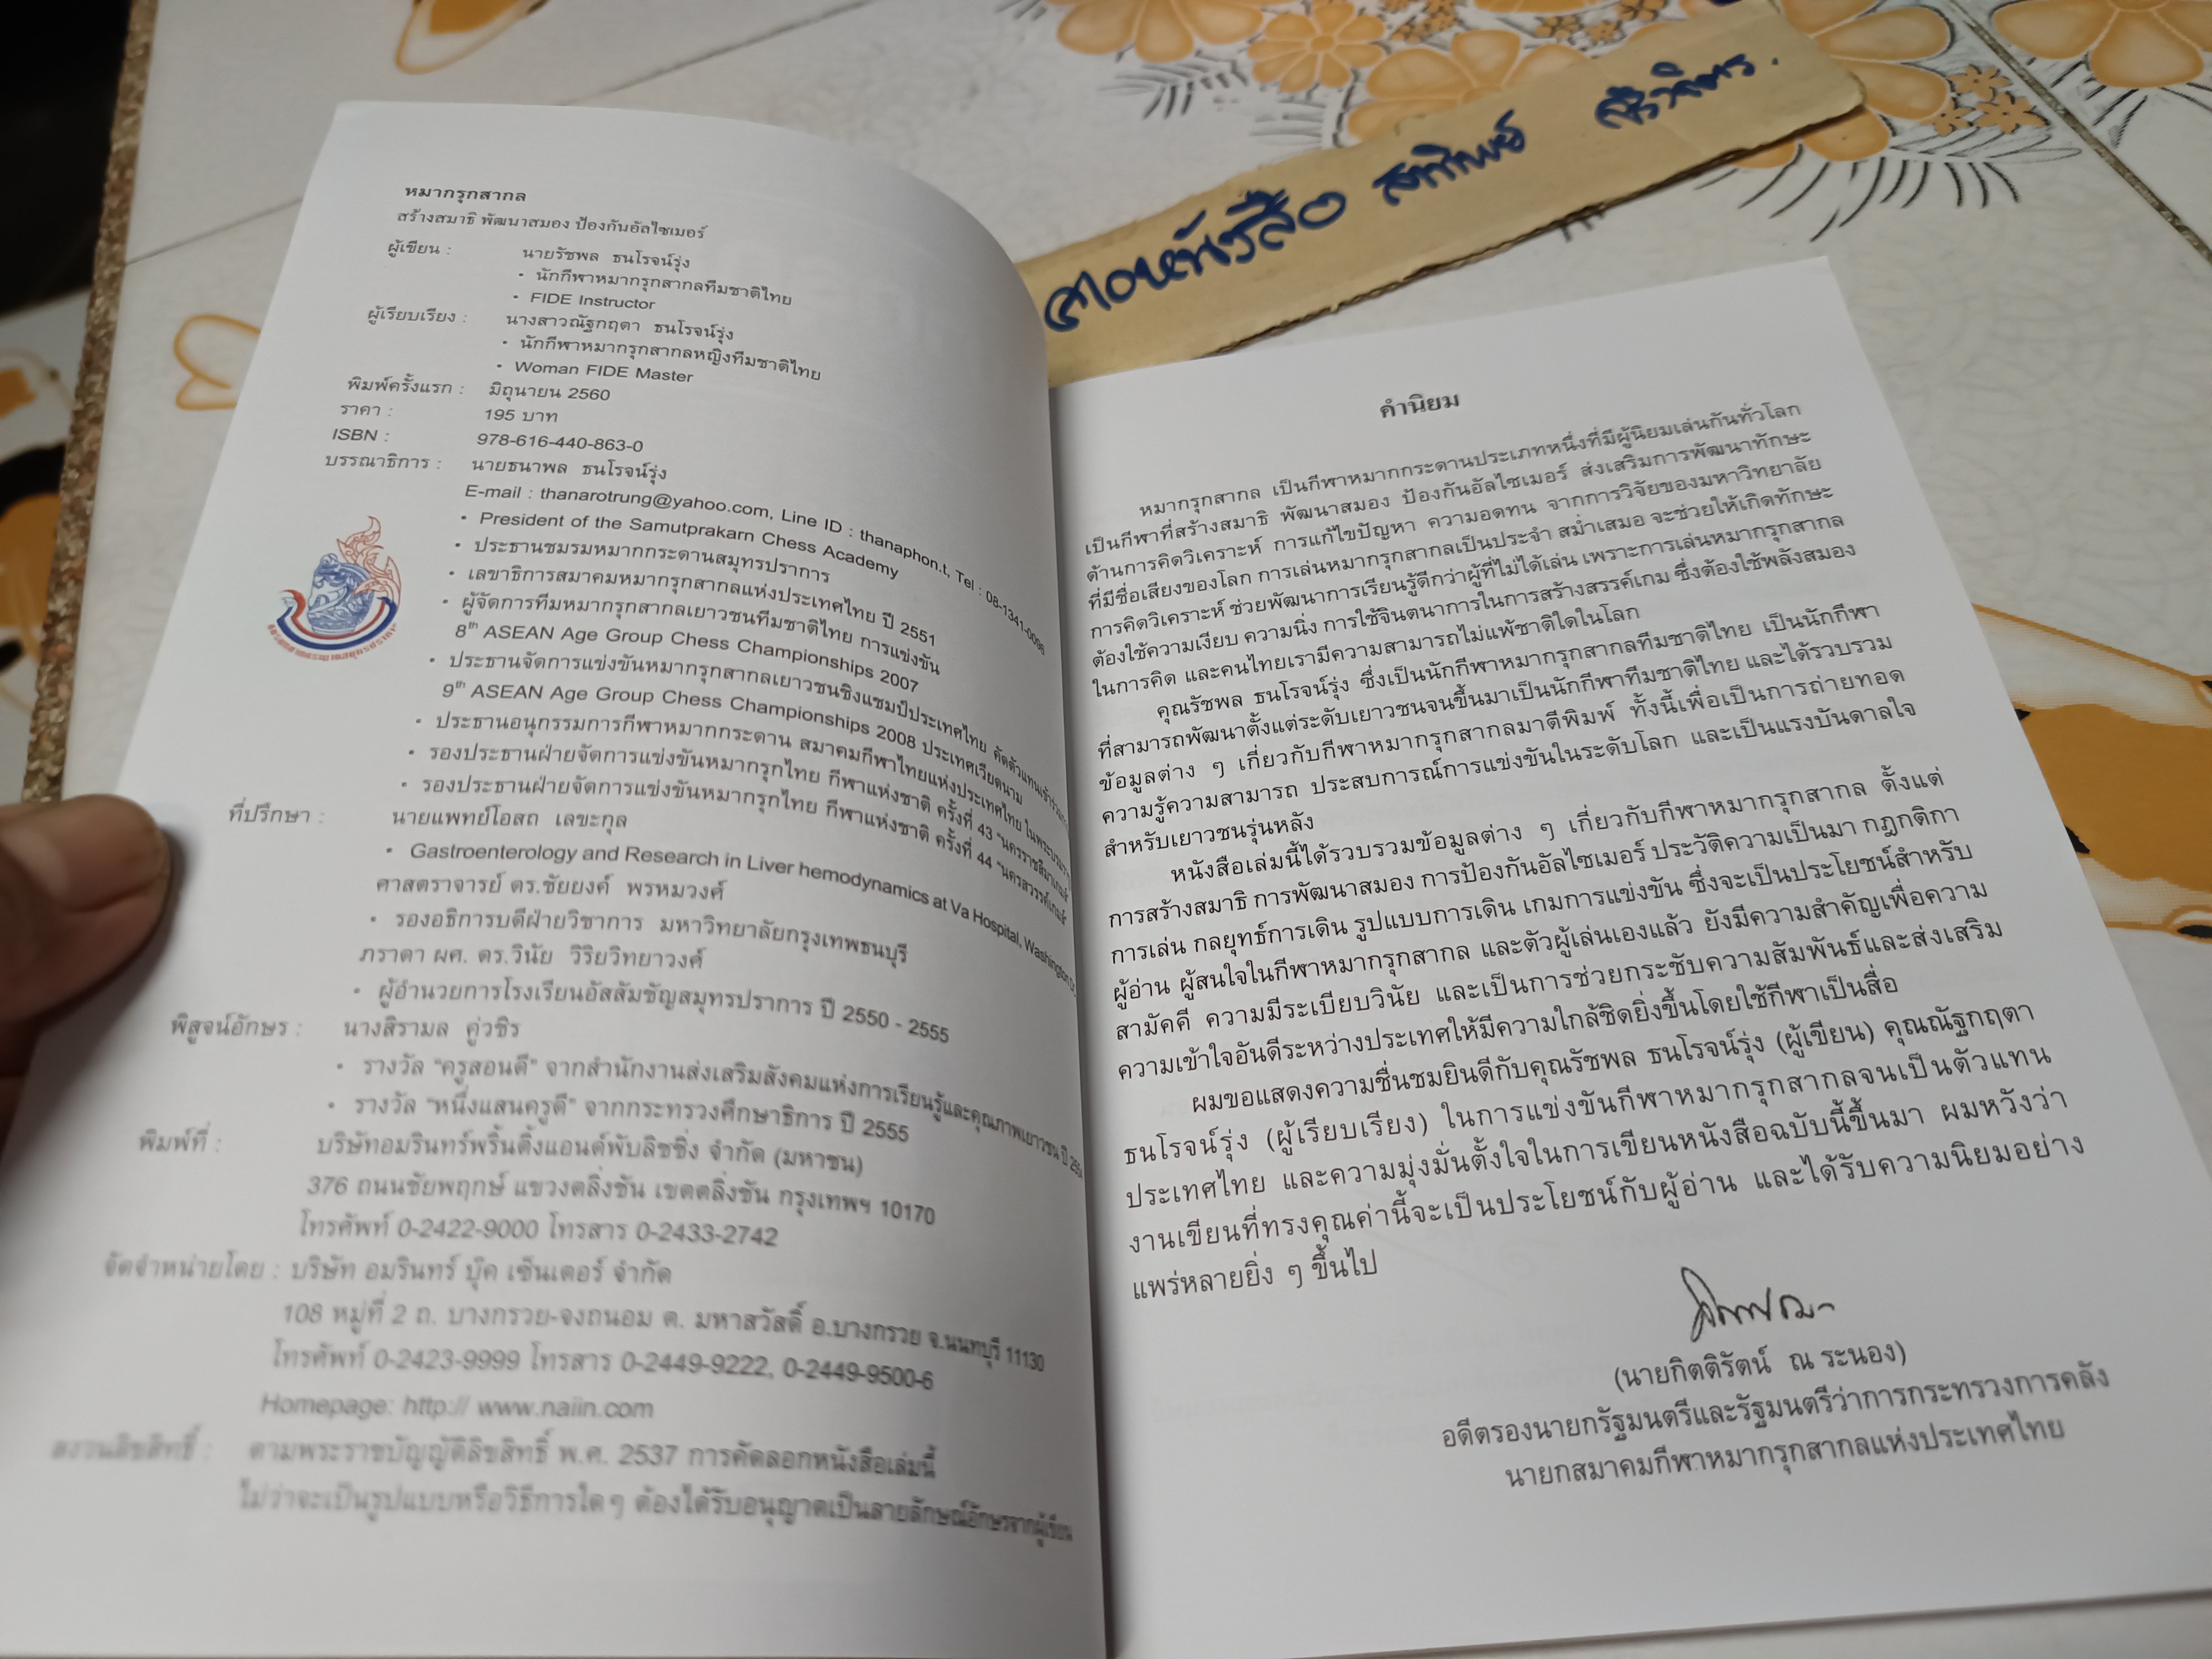 หมากรุกสากล
สร้างสมาธิ พัฒนาสมอง ป้องกันอัลไซเมอร์
ผู้เขียน : นายรัชพล ธนโรจน์รุ่ง
• นักกีฬาหมากรุกสากลทีมชาติไทย
• FIDE Instructor
ผู้เรียบเรียง : นางสาวณัฐกฤตา ธนโรจน์รุ่ง
• นักกีฬาหมากรุกสากลหญิงทีมชาติไทย
• Woman FIDE Master
พิมพ์ครั้งแรก : มิถุนายน 2560
ราคา : 195 บาท
ISBN : 978-616-440-863-0
บรรณาธิการ : นายธนาพล ธนโรจน์รุ่ง
E-mail : thanarotrung@yahoo.com, Line ID : thanaphon.t, Tel : 08-1341-0098
• President of the Samutprakarn Chess Academy
• ประธานชมรมหมากกระดานสมุทรปราการ
• เลขาธิการสมาคมหมากรุกสากลแห่งประเทศไทย ปี 2551
• ผู้จัดการทีมหมากรุกสากลเยาวชนทีมชาติไทย การแข่งขัน
8th ASEAN Age Group Chess Championships 2007
• ประธานจัดการแข่งขันหมากรุกสากลเยาวชนชิงแชมป์ประเทศไทย คัดตัวแทนเข้าร่วม
9th ASEAN Age Group Chess Championships 2008 ประเทศเวียดนาม
• ประธานอนุกรรมการกีฬาหมากกระดาน สมาคมกีฬาไทยแห่งประเทศไทย
• รองประธานฝ่ายจัดการแข่งขันหมากรุกไทย กีฬาแห่งชาติ ครั้งที่ 43 "นครราชสีมาเกมส์"
• รองประธานฝ่ายจัดการแข่งขันหมากรุกไทย กีฬาแห่งชาติ ครั้งที่ 44 "นครสวรรค์เกมส์"
ที่ปรึกษา : นายแพทย์โอสถ เลขะกุล
• Gastroenterology and Research in Liver hemodynamics at Va Hospital, Washington
ศาสตราจารย์ ดร.ชัยยงค์ พรหมวงศ์
• รองอธิการบดีฝ่ายวิชาการ มหาวิทยาลัยกรุงเทพธนบุรี
ภราดา ผศ. ดร.วินัย วิริยวิทยาวงศ์
• ผู้อำนวยการโรงเรียนอัสสัมชัญสมุทรปราการ ปี 2550 - 2555
พิสูจน์อักษร : นางสิรามล คู่วชิร
• รางวัล "ครูสอนดี" จากสำนักงานส่งเสริมสังคมแห่งการเรียนรู้และคุณภาพเยาวชน ปี 2554
• รางวัล "หนึ่งแสนครูดี" จากกระทรวงศึกษาธิการ ปี 2555
พิมพ์ที่ : บริษัทอมรินทร์พริ้นติ้งแอนด์พับลิชชิ่ง จำกัด (มหาชน)
376 ถนนชัยพฤกษ์ แขวงตลิ่งชัน เขตตลิ่งชัน กรุงเทพฯ 10170
โทรศัพท์ 0-2422-9000 โทรสาร 0-2433-2742
จัดจำหน่ายโดย : บริษัท อมรินทร์ บุ๊ค เซ็นเตอร์ จำกัด
108 หมู่ที่ 2 ถ. บางกรวย-จงถนอม ต. มหาสวัสดิ์ อ.บางกรวย จ.นนทบุรี 11130
โทรศัพท์ 0-2423-9999 โทรสาร 0-2449-9222, 0-2449-9500-6
Homepage: http:// www.naiin.com
สงวนลิขสิทธิ์ : ตามพระราชบัญญัติลิขสิทธิ์ พ.ศ. 2537 การคัดลอกหนังสือเล่มนี้
ไม่ว่าจะเป็นรูปแบบหรือวิธีการใดๆ ต้องได้รับอนุญาตเป็นลายลักษณ์อักษรจากผู้เขียน
คำนิยม
หมากรุกสากล เป็นกีฬาหมากกระดานประเภทหนึ่งที่มีผู้นิยมเล่นกันทั่วโลก
เป็นกีฬาที่สร้างสมาธิ พัฒนาสมอง ป้องกันอัลไซเมอร์ ส่งเสริมการพัฒนาทักษะ
ด้านการคิดวิเคราะห์ การแก้ไขปัญหา ความอดทน จากการวิจัยของมหาวิทยาลัย
ที่มีชื่อเสียงของโลก การเล่นหมากรุกสากลเป็นประจำ สม่ำเสมอ จะช่วยให้เกิดทักษะ
การคิดวิเคราะห์ ช่วยพัฒนาการเรียนรู้ดีกว่าผู้ที่ไม่ได้เล่น เพราะการเล่นหมากรุกสากล
ต้องใช้ความเงียบ ความนิ่ง การใช้จินตนาการในการสร้างสรรค์เกม ซึ่งต้องใช้พลังสมอง
ในการคิด และคนไทยเรามีความสามารถไม่แพ้ชาติใดในโลก
คุณรัชพล ธนโรจน์รุ่ง ซึ่งเป็นนักกีฬาหมากรุกสากลทีมชาติไทย เป็นนักกีฬา
ที่สามารถพัฒนาตั้งแต่ระดับเยาวชนจนขึ้นมาเป็นนักกีฬาทีมชาติไทย และได้รวบรวม
ข้อมูลต่าง ๆ เกี่ยวกับกีฬาหมากรุกสากลมาตีพิมพ์ ทั้งนี้เพื่อเป็นการถ่ายทอด
ความรู้ความสามารถ ประสบการณ์การแข่งขันในระดับโลก และเป็นแรงบันดาลใจ
สำหรับเยาวชนรุ่นหลัง
หนังสือเล่มนี้ได้รวบรวมข้อมูลต่าง ๆ เกี่ยวกับกีฬาหมากรุกสากล ตั้งแต่
การสร้างสมาธิ การพัฒนาสมอง การป้องกันอัลไซเมอร์ ประวัติความเป็นมา กฎกติกา
การเล่น กลยุทธ์การเดิน รูปแบบการเดิน เกมการแข่งขัน ซึ่งจะเป็นประโยชน์สำหรับ
ผู้อ่าน ผู้สนใจในกีฬาหมากรุกสากล และตัวผู้เล่นเองแล้ว ยังมีความสำคัญเพื่อความ
สามัคคี ความมีระเบียบวินัย และเป็นการช่วยกระชับความสัมพันธ์และส่งเสริม
ความเข้าใจอันดีระหว่างประเทศให้มีความใกล้ชิดยิ่งขึ้นโดยใช้กีฬาเป็นสื่อ
ผมขอแสดงความชื่นชมยินดีกับคุณรัชพล ธนโรจน์รุ่ง (ผู้เขียน) คุณณัฐกฤตา
ธนโรจน์รุ่ง (ผู้เรียบเรียง) ในการแข่งขันกีฬาหมากรุกสากลจนเป็นตัวแทน
ประเทศไทย และความมุ่งมั่นตั้งใจในการเขียนหนังสือฉบับนี้ขึ้นมา ผมหวังว่า
งานเขียนที่ทรงคุณค่านี้จะเป็นประโยชน์กับผู้อ่าน และได้รับความนิยมอย่าง
แพร่หลายยิ่ง ๆ ขึ้นไป
(นายกิตติรัตน์ ณ ระนอง)
อดีตรองนายกรัฐมนตรีและรัฐมนตรีว่าการกระทรวงการคลัง
นายกสมาคมกีฬาหมากรุกสากลแห่งประเทศไทย